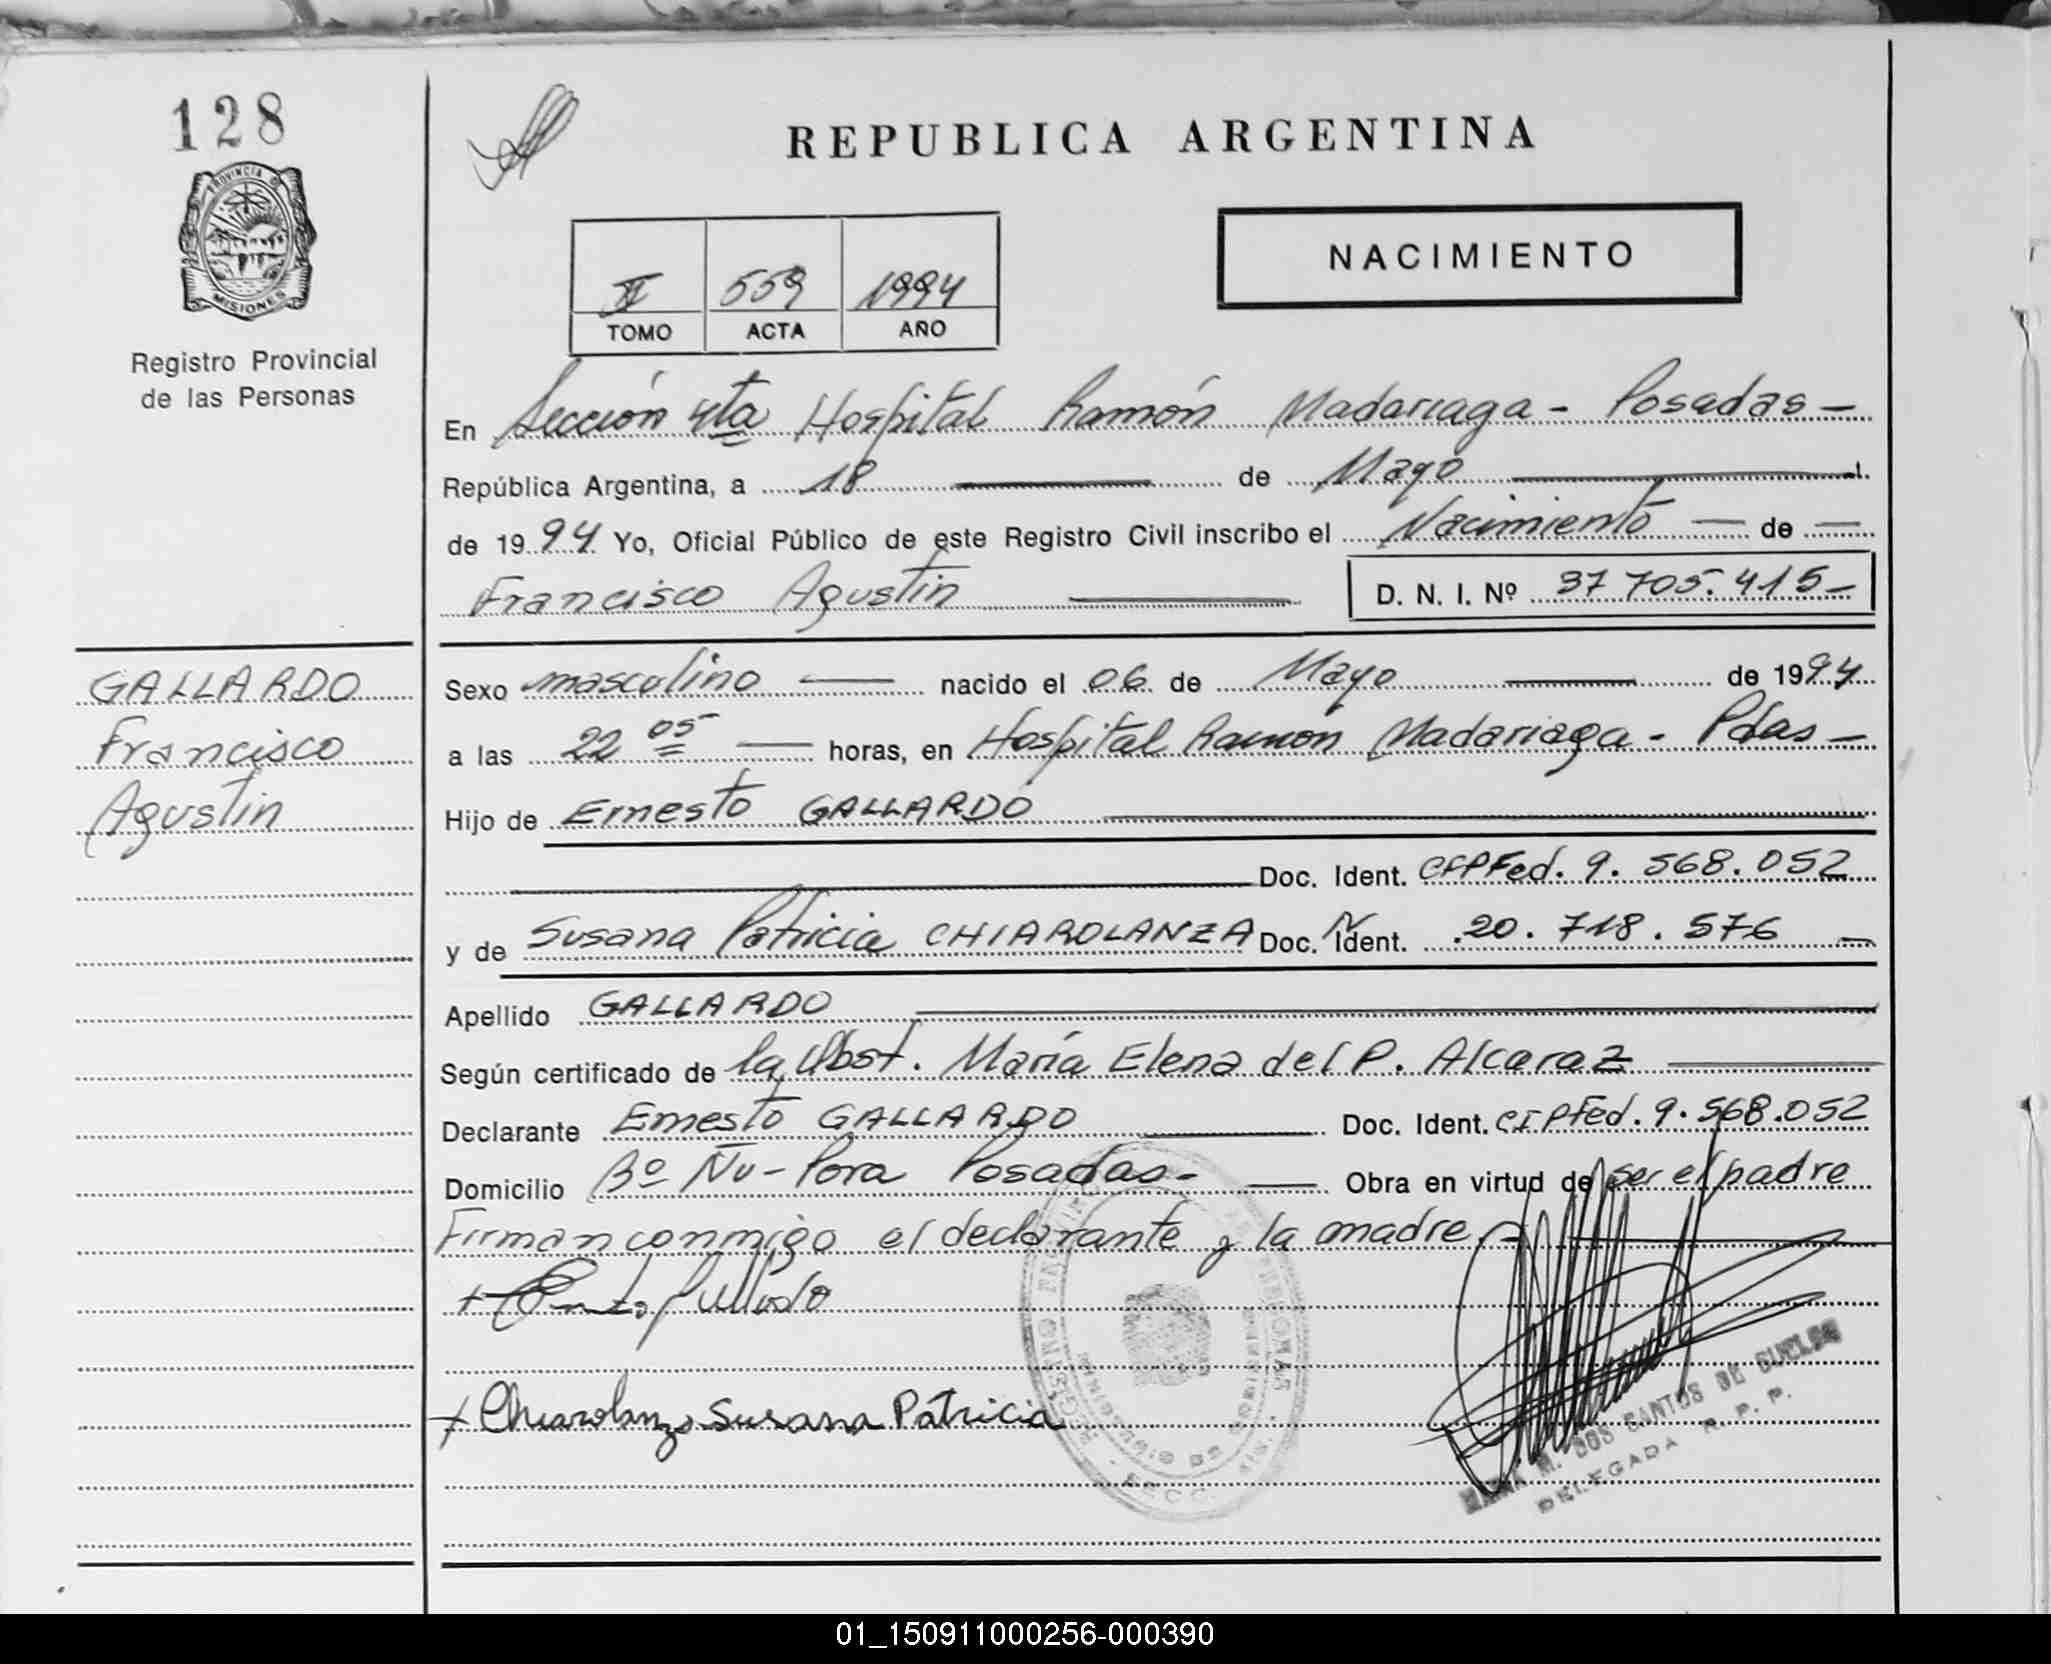 128
PROVINCIA D
MISIONES
Registro Provincial
de las Personas
REPUBLICA ARGENTINA
NACIMIENTO
II 559 1994
TOMO ACTA AÑO
En Sección 4ta Hospital Ramón Madariaga - Posadas -
República Argentina, a 18 de Mayo
de 1994 Yo, Oficial Público de este Registro Civil inscribo el Nacimiento de
Francisco Agustin D. N. I. Nº 37 705.415-
GALLARDO
Francisco
Agustin
Sexo masculino nacido el 06 de Mayo de 1994
a las 22 05 horas, en Hospital Ramón Madariaga - Pdas -
Hijo de Ernesto GALLARDO
Doc. Ident. CIPFed. 9.568.052
y de Susana Patricia CHIAROLANZA Doc. N Ident. 20.718.576 -
Apellido GALLARDO
Según certificado de la Obst. María Elena del P. Alcaraz
Declarante Ernesto GALLARDO Doc. Ident. CIPFed. 9.568.052
Domicilio Bº Ñu-Pora Posadas- Obra en virtud de ser el padre
Firman conmigo el declarante y la madre.-
+ Chiarolanza Susana Patricia
DOS SANTOS DE
DELEGADA R. P. P.
01_150911000256-000390